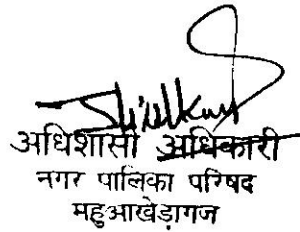 अधिशासी अधिकारी
नगर पालिका परिषद
महुआखेड़ागज